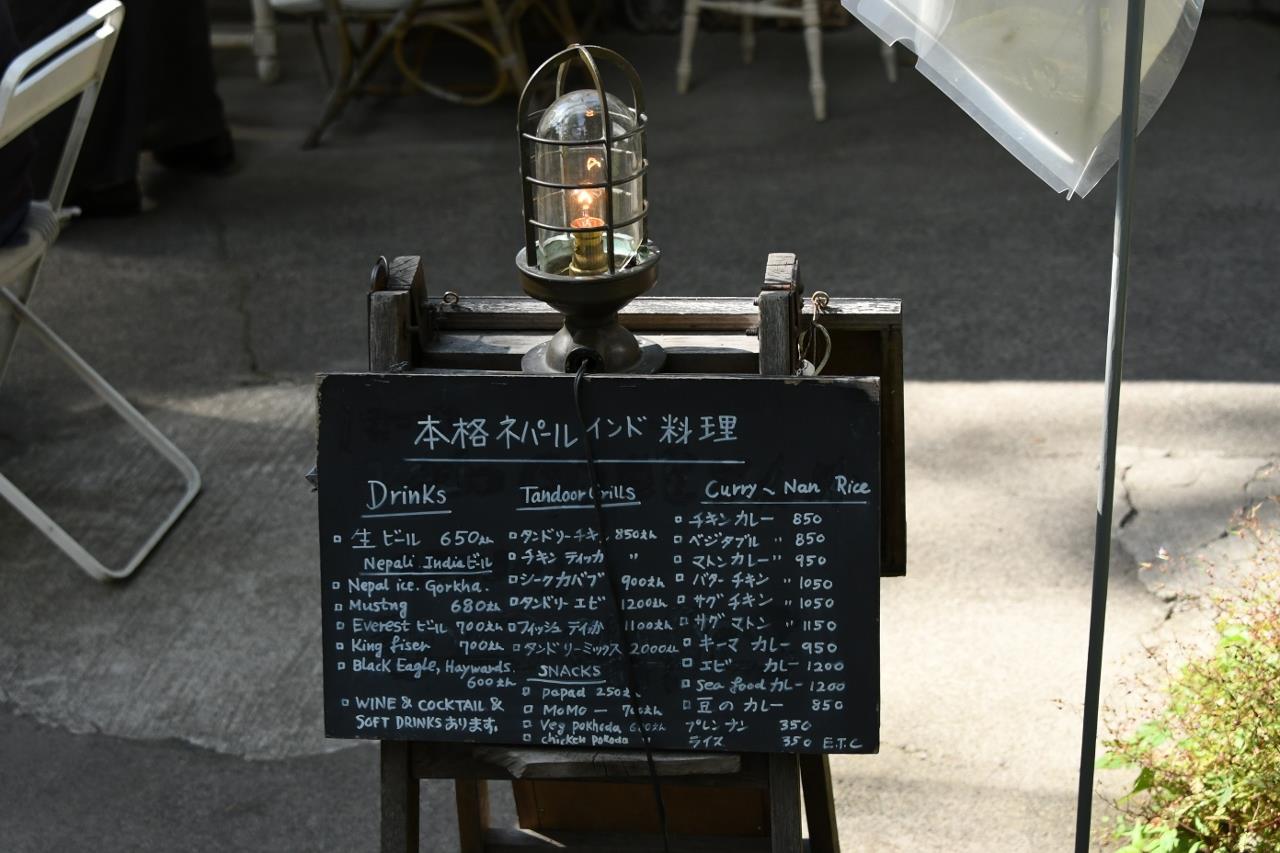 本格ネパールインド料理
Drinks
生ビール 650えん
Nepali Indiaビール
Nepal ice. Gorkha.
Mustng 680えん
Everest ビール 700えん
King fiser 700えん
Black Eagle, Haywards.
600えん
WINE & COCKTAIL &
SOFT DRINKSあります。
Tandoor Grills
タンドリーチキン 850えん
チキン ティッカ 〃
シークカバブ 900えん
タンドリーエビ 1200えん
フィッシュ ティッカ 1100えん
タンドリーミックス 2000えん
SNACKS
papad 250えん
MoMo ー 700えん
Veg pokhoda
chicken pokoda
Curry ~ Nan Rice
チキンカレー 850
ベジタブル 〃 850
マトンカレー〃 950
バターチキン 〃 1050
サグチキン 〃 1050
サグマトン 〃 1150
キーマカレー 950
エビ カレー 1200
Sea food カレー 1200
豆のカレー 850
プレンナン 350
ライス 350 E.T.C